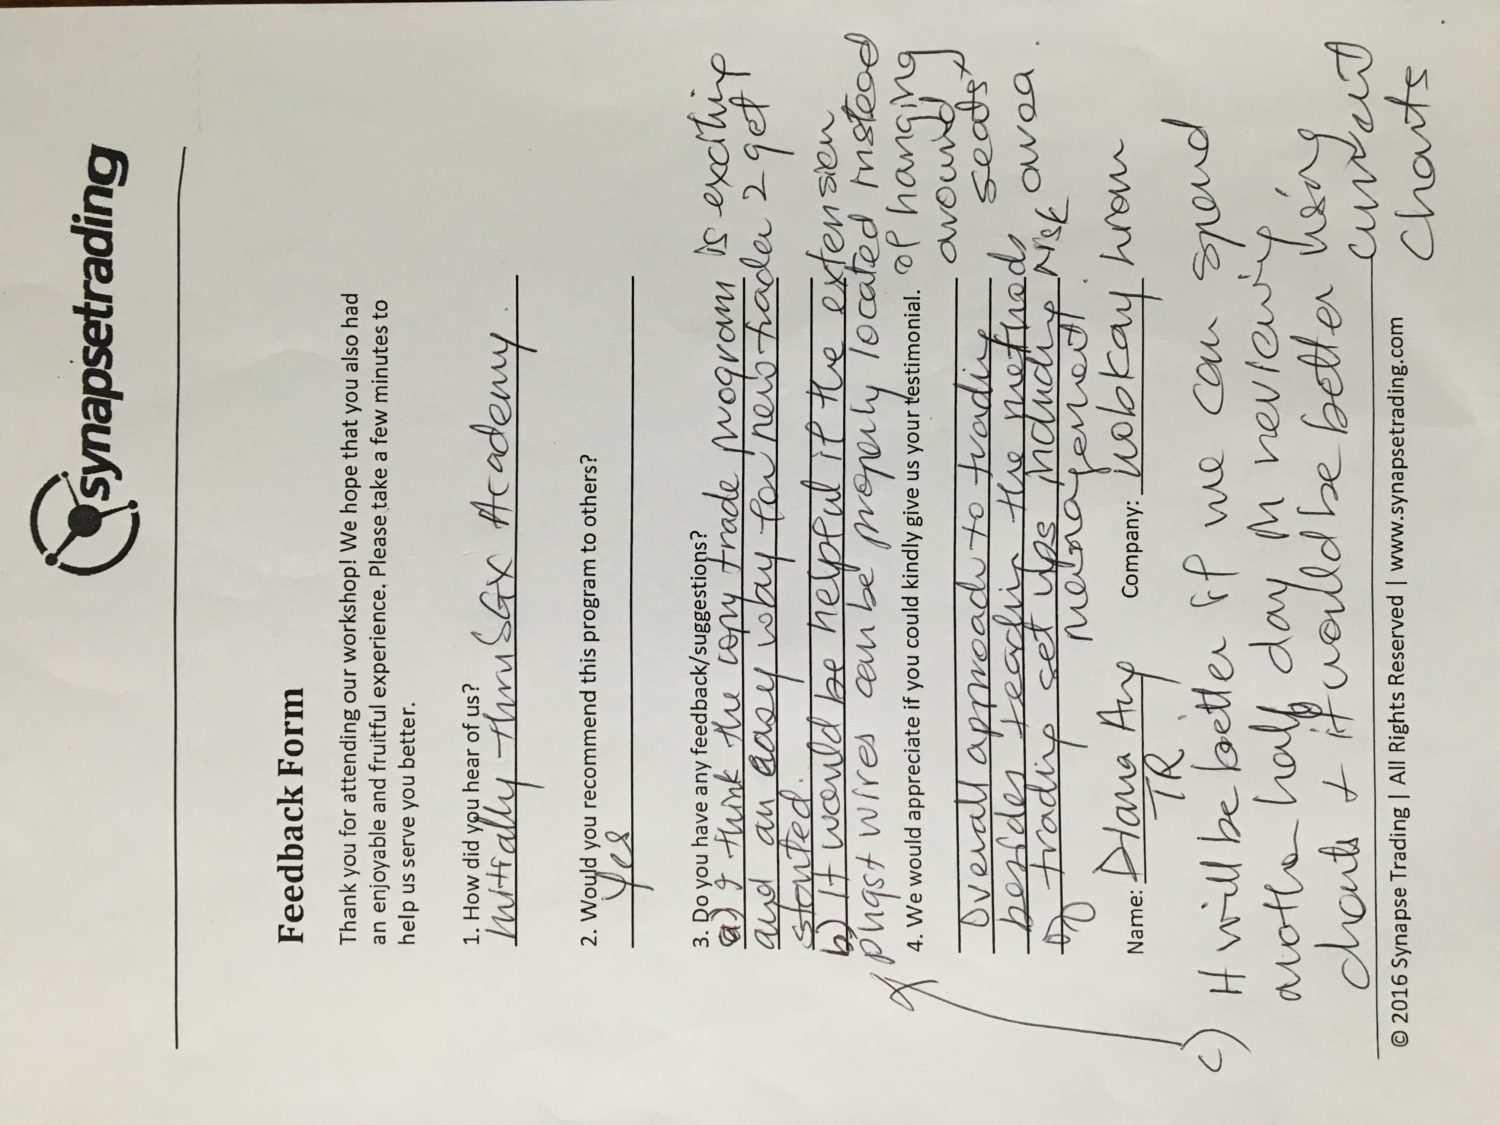 synapsetrading
Feedback Form
Thank you for attending our workshop! We hope that you also had
an enjoyable and fruitful experience. Please take a few minutes to
help us serve you better.
1. How did you hear of us?
Initially thru SGX Academy.
2. Would you recommend this program to others?
Yes
3. Do you have any feedback/suggestions?
a) I think the copy trade program is exciting
and an easy way for new trader 2 get
started.
b) It would be helpful if the extension
plugs wires can be properly located instead
of hanging
around
seats +
area.
4. We would appreciate if you could kindly give us your testimonial.
Overall approach to trading
besides teaching the methods
of trading set ups including risk
management.
Name: Diana Ang Company:
TR
c) It will be better if we can spend
another half day in reviewing
charts + it would be better using
current
charts
© 2016 Synapse Trading | All Rights Reserved | www.synapsetrading.com